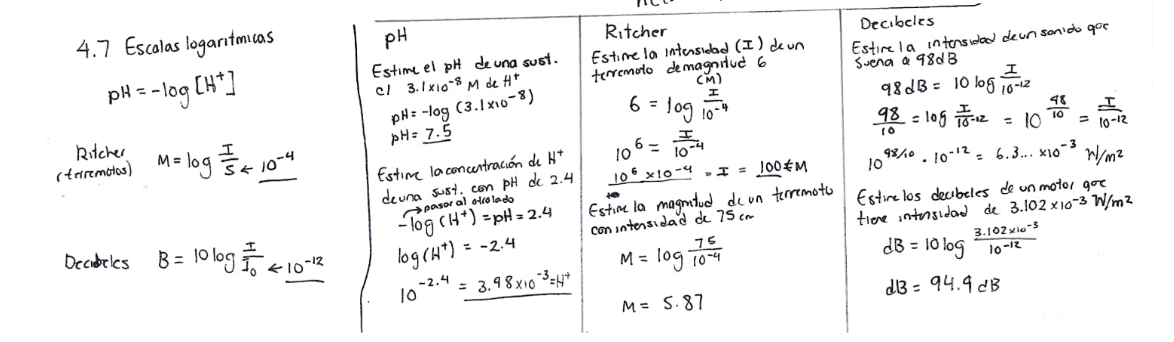 4.7 Escalas logaritmicas
pH = -log [H⁺]
Ritcher
(terremotos) M = log I/S ← 10⁻⁴
Decibeles B = 10 log I/I₀ ← 10⁻¹²
pH
Estime el pH de una sust.
c/ 3.1x10⁻⁸ M de H⁺
pH = -log (3.1x10⁻⁸)
pH = 7.5
Estime la concentración de H⁺
de una sust. con pH de 2.4
→ pasar al otro lado
-log (H⁺) = pH = 2.4
log (H⁺) = -2.4
10⁻²·⁴ = 3.98x10⁻³ = H⁺
Ritcher
Estime la intensidad (I) de un
terremoto de magnitud 6
(M)
6 = log I/10⁻⁴
10⁶ = I/10⁻⁴
10⁶ x10⁻⁴ = I = 100 M
Estime la magnitud de un terremoto
con intensidad de 75 cm
M = log 75/10⁻⁴
M = 5.87
Decibeles
Estime la intensidad de un sonido que
suena a 98dB
98dB = 10 log I/10⁻¹²
98/10 = log I/10⁻¹² = 10^98/10 = I/10⁻¹²
10^98/10 · 10⁻¹² = 6.3... x10⁻³ W/m²
Estime los decibeles de un motor que
tiene intensidad de 3.102 x10⁻³ W/m²
dB = 10 log 3.102x10⁻³/10⁻¹²
dB = 94.9 dB